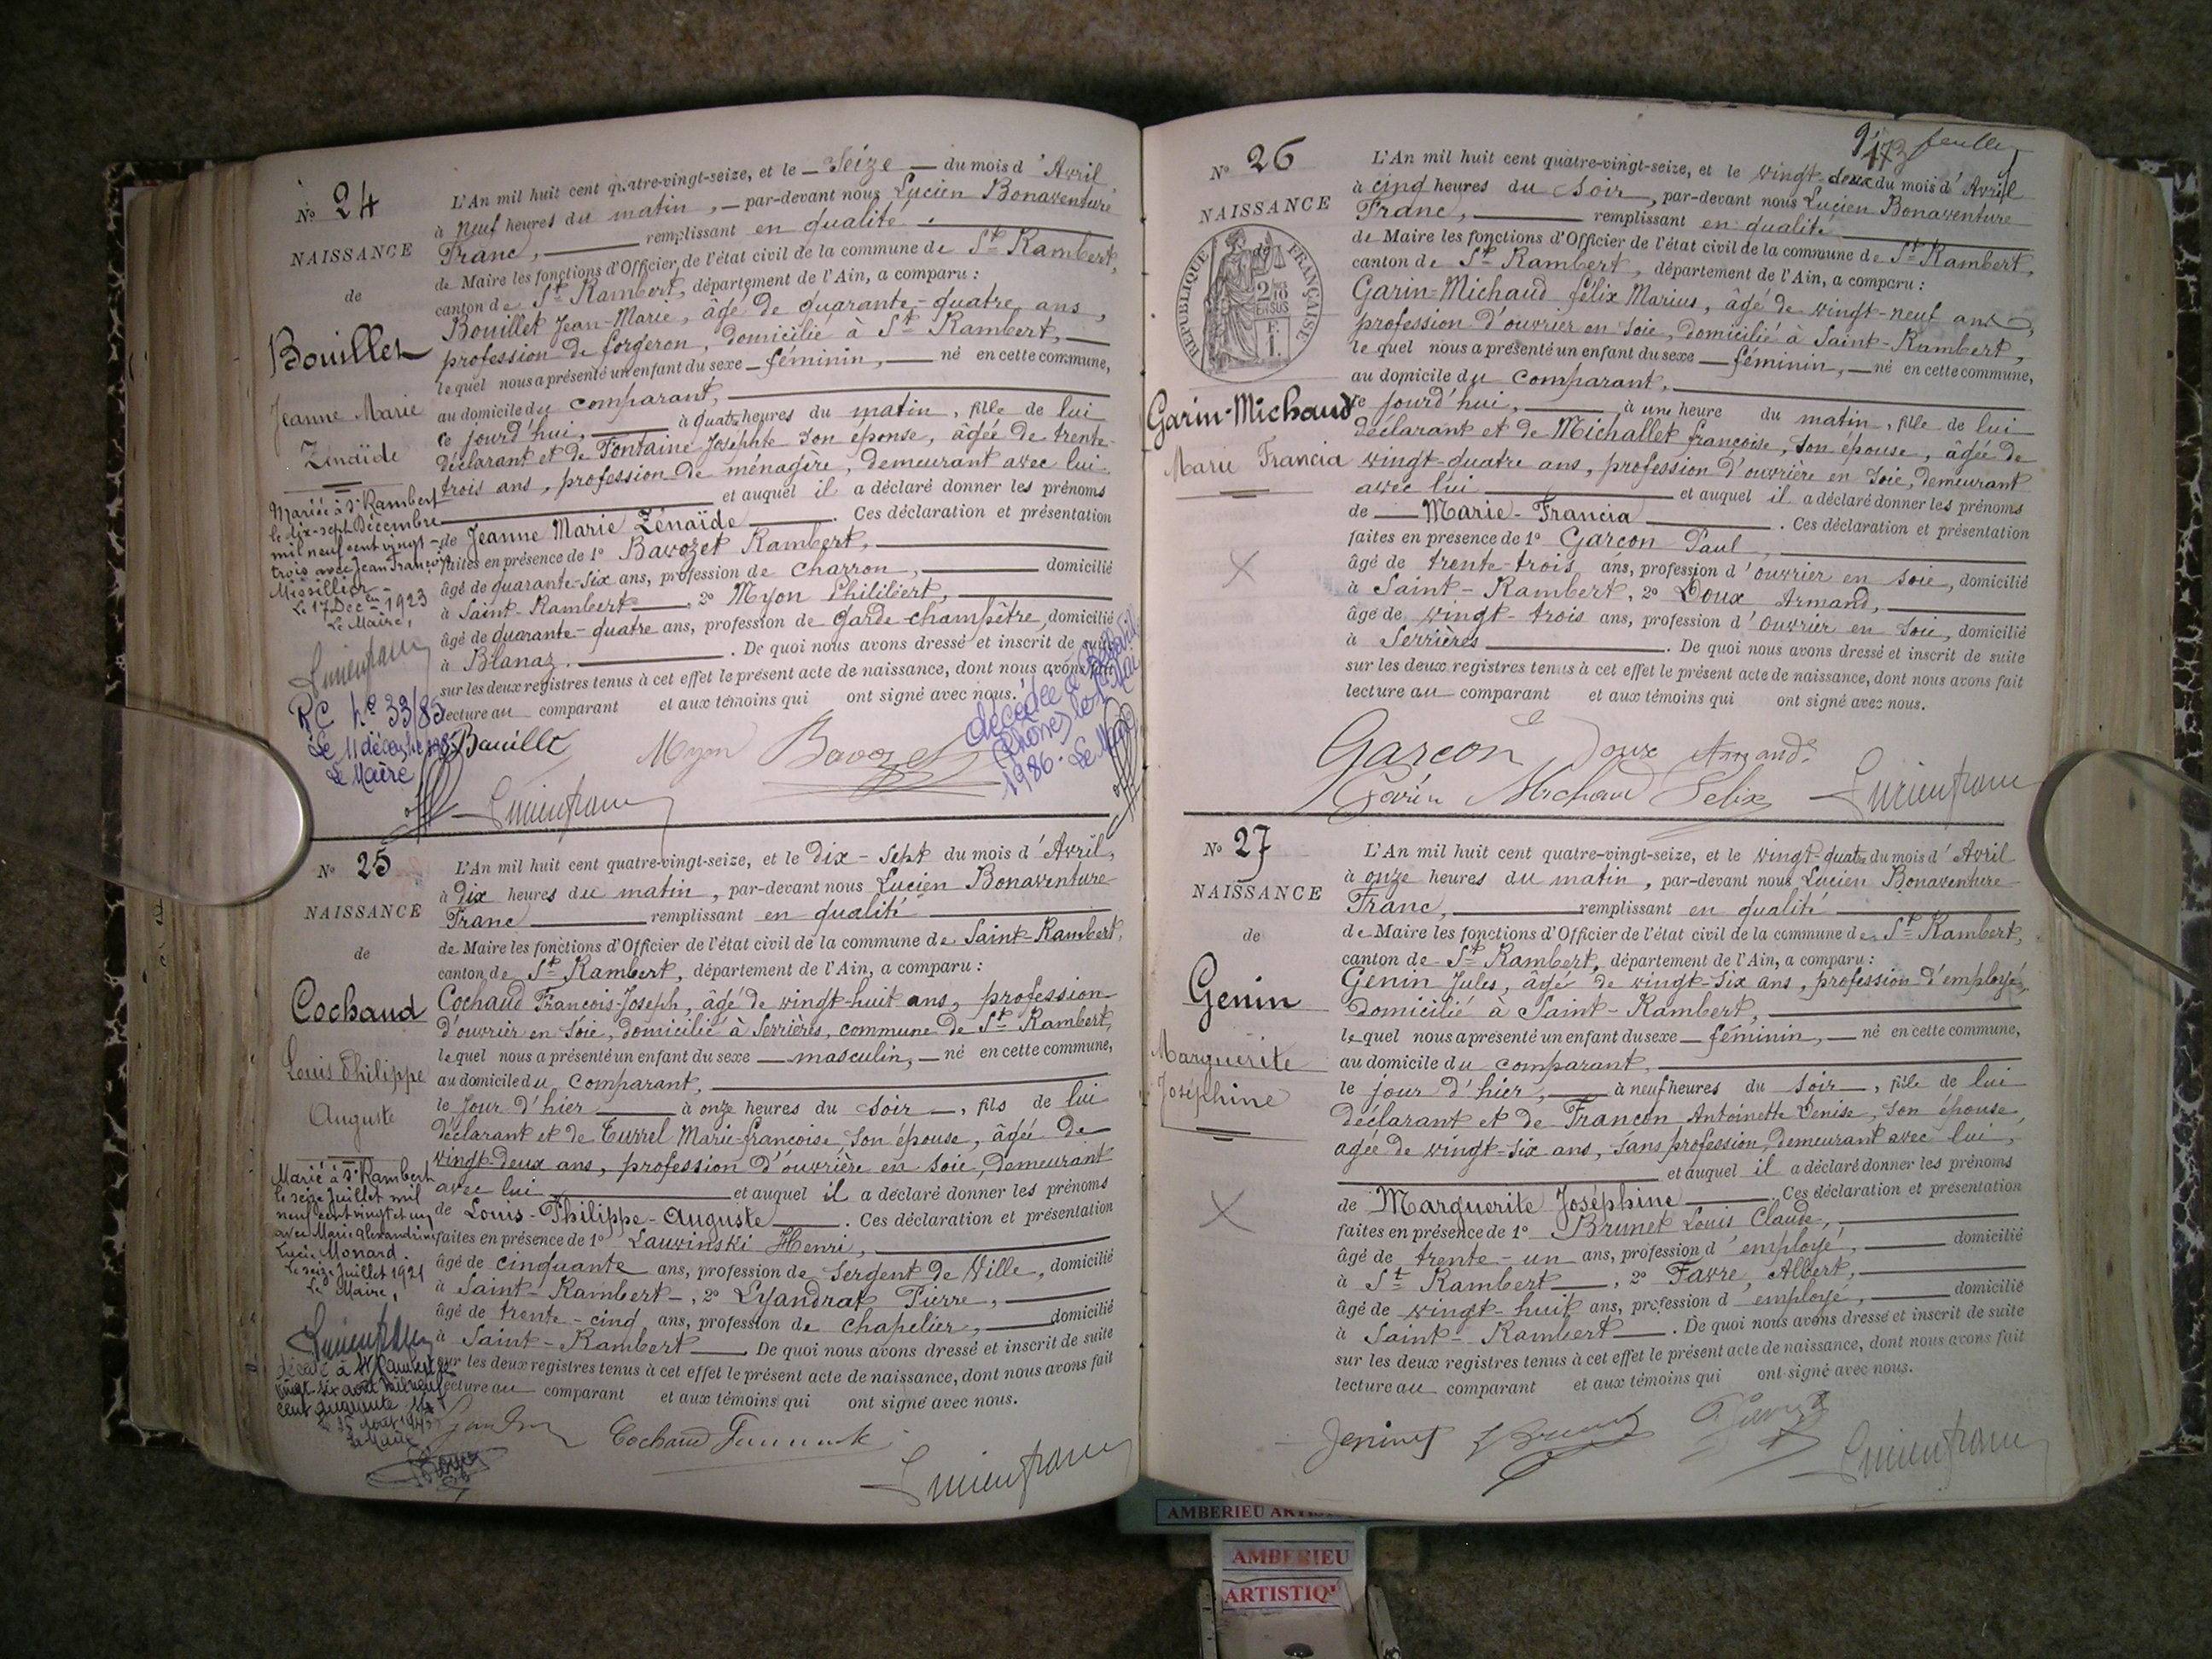 Nº 24
NAISSANCE
de
Bouillet
Jeanne Marie
Zénaïde
Mariée à St Rambert
le dix-sept Décembre
mil neuf cent vingt-
trois avec Jean François
Missillier
Le 17 Décem 1923
Le Maire,
Lucien franc
RC Nº 33/85
Le 11 décembre 1985
Le Maire
L'An mil huit cent quatre-vingt-seize, et le Seize du mois d'Avril,
à neuf heures du matin, par-devant nous Lucien Bonaventure
Franc, remplissant en qualité
de Maire les fonctions d'Officier de l'état civil de la commune de St Rambert,
canton de St Rambert, département de l'Ain, a comparu :
Bouillet Jean-Marie, âgé de quarante-quatre ans,
profession de forgeron, domicilié à St Rambert,
lequel nous a présenté un enfant du sexe féminin, né en cette commune,
au domicile du comparant,
ce jourd'hui, à quatre heures du matin, fille de lui
déclarant et de Fontaine Josephte son épouse, âgée de trente-
trois ans, profession de ménagère, demeurant avec lui
et auquel il a déclaré donner les prénoms
de Jeanne Marie Zénaïde. Ces déclaration et présentation
faites en présence de 1º Bavozet Rambert,
âgé de quarante-six ans, profession de charron, domicilié
à Saint-Rambert, 2º Myon Philibert,
âgé de quarante-quatre ans, profession de garde-champêtre, domicilié
à Blanaz. De quoi nous avons dressé et inscrit de suite
sur les deux registres tenus à cet effet le présent acte de naissance, dont nous avons fait
lecture au comparant et aux témoins qui ont signé avec nous.
décédée à
(Rhône) le Mai
1986. Le Maire
Bouillet Myon Bavozet
Lucien franc
Nº 25
NAISSANCE
de
Cochaud
Louis Philippe
Auguste
Marié à St Rambert
le seize Juillet mil
neuf cent vingt et un
avec Marie Alexandrine
Lucie Monard.
Le seize Juillet 1921
Le Maire,
Lucien franc
décédé à St Rambert le
vingt six août mil neuf
cent quarante
Le Maire
L'An mil huit cent quatre-vingt-seize, et le dix-sept du mois d'Avril,
à dix heures du matin, par-devant nous Lucien Bonaventure
Franc remplissant en qualité
de Maire les fonctions d'Officier de l'état civil de la commune de Saint-Rambert,
canton de St Rambert, département de l'Ain, a comparu :
Cochaud François-Joseph, âgé de vingt-huit ans, profession
d'ouvrier en soie, domicilié à Serrières, commune de St Rambert,
lequel nous a présenté un enfant du sexe masculin, né en cette commune,
au domicile du comparant,
le jour d'hier à onze heures du soir, fils de lui
déclarant et de Turrel Marie-françoise son épouse, âgée de
vingt-deux ans, profession d'ouvrière en soie, demeurant
avec lui et auquel il a déclaré donner les prénoms
de Louis-Philippe-Auguste. Ces déclaration et présentation
faites en présence de 1º Lauvinski Henri,
âgé de cinquante ans, profession de Sergent de Ville, domicilié
à Saint-Rambert, 2º Lyandrat Pierre,
âgé de trente-cinq ans, profession de chapelier, domicilié
à Saint-Rambert. De quoi nous avons dressé et inscrit de suite
sur les deux registres tenus à cet effet le présent acte de naissance, dont nous avons fait
lecture au comparant et aux témoins qui ont signé avec nous.
Cochaud
Lucien franc
9e feuillet
173
Nº 26
NAISSANCE
de
RÉPUBLIQUE FRANÇAISE
2/10 EN SUS
F. 1.
Garin-Michaud
Marie Francia
L'An mil huit cent quatre-vingt-seize, et le vingt-deux du mois d'Avril
à cinq heures du soir, par-devant nous Lucien Bonaventure
Franc, remplissant en qualité
de Maire les fonctions d'Officier de l'état civil de la commune de St Rambert,
canton de St Rambert, département de l'Ain, a comparu :
Garin-Michaud félix Marius, âgé de vingt-neuf ans,
profession d'ouvrier en soie, domicilié à Saint-Rambert,
lequel nous a présenté un enfant du sexe féminin, né en cette commune,
au domicile du comparant,
ce jourd'hui, à une heure du matin, fille de lui
déclarant et de Michallet françoise, son épouse, âgée de
vingt-quatre ans, profession d'ouvrière en soie, demeurant
avec lui et auquel il a déclaré donner les prénoms
de Marie-Francia. Ces déclaration et présentation
faites en présence de 1º Garçon Paul,
âgé de trente-trois ans, profession d'ouvrier en soie, domicilié
à Saint-Rambert, 2º Doux Armand,
âgé de vingt-trois ans, profession d'ouvrier en soie, domicilié
à Serrières. De quoi nous avons dressé et inscrit de suite
sur les deux registres tenus à cet effet le présent acte de naissance, dont nous avons fait
lecture au comparant et aux témoins qui ont signé avec nous.
Garçon Doux Armand
Garin Michaud Felix Lucien franc
Nº 27
NAISSANCE
de
Genin
Marguerite
Joséphine
L'An mil huit cent quatre-vingt-seize, et le vingt-quatre du mois d'Avril
à onze heures du matin, par-devant nous Lucien Bonaventure
Franc, remplissant en qualité
de Maire les fonctions d'Officier de l'état civil de la commune de St Rambert,
canton de St Rambert, département de l'Ain, a comparu :
Genin Jules, âgé de vingt-six ans, profession d'employé,
domicilié à Saint-Rambert,
lequel nous a présenté un enfant du sexe féminin, né en cette commune,
au domicile du comparant,
le jour d'hier, à neuf heures du soir, fille de lui
déclarant et de Françon Antoinette Denise, son épouse
âgée de vingt-six ans, sans profession, demeurant avec lui,
et auquel il a déclaré donner les prénoms
de Marguerite Joséphine. Ces déclaration et présentation
faites en présence de 1º Brunet Louis Claude,
âgé de trente-un ans, profession d'employé, domicilié
à St Rambert, 2º Favre, Albert,
âgé de vingt-huit ans, profession d'employé, domicilié
à Saint-Rambert. De quoi nous avons dressé et inscrit de suite
sur les deux registres tenus à cet effet le présent acte de naissance, dont nous avons fait
lecture au comparant et aux témoins qui ont signé avec nous.
Lucien franc
AMBERIEU ARTIS
AMBERIEU
ARTISTIQ